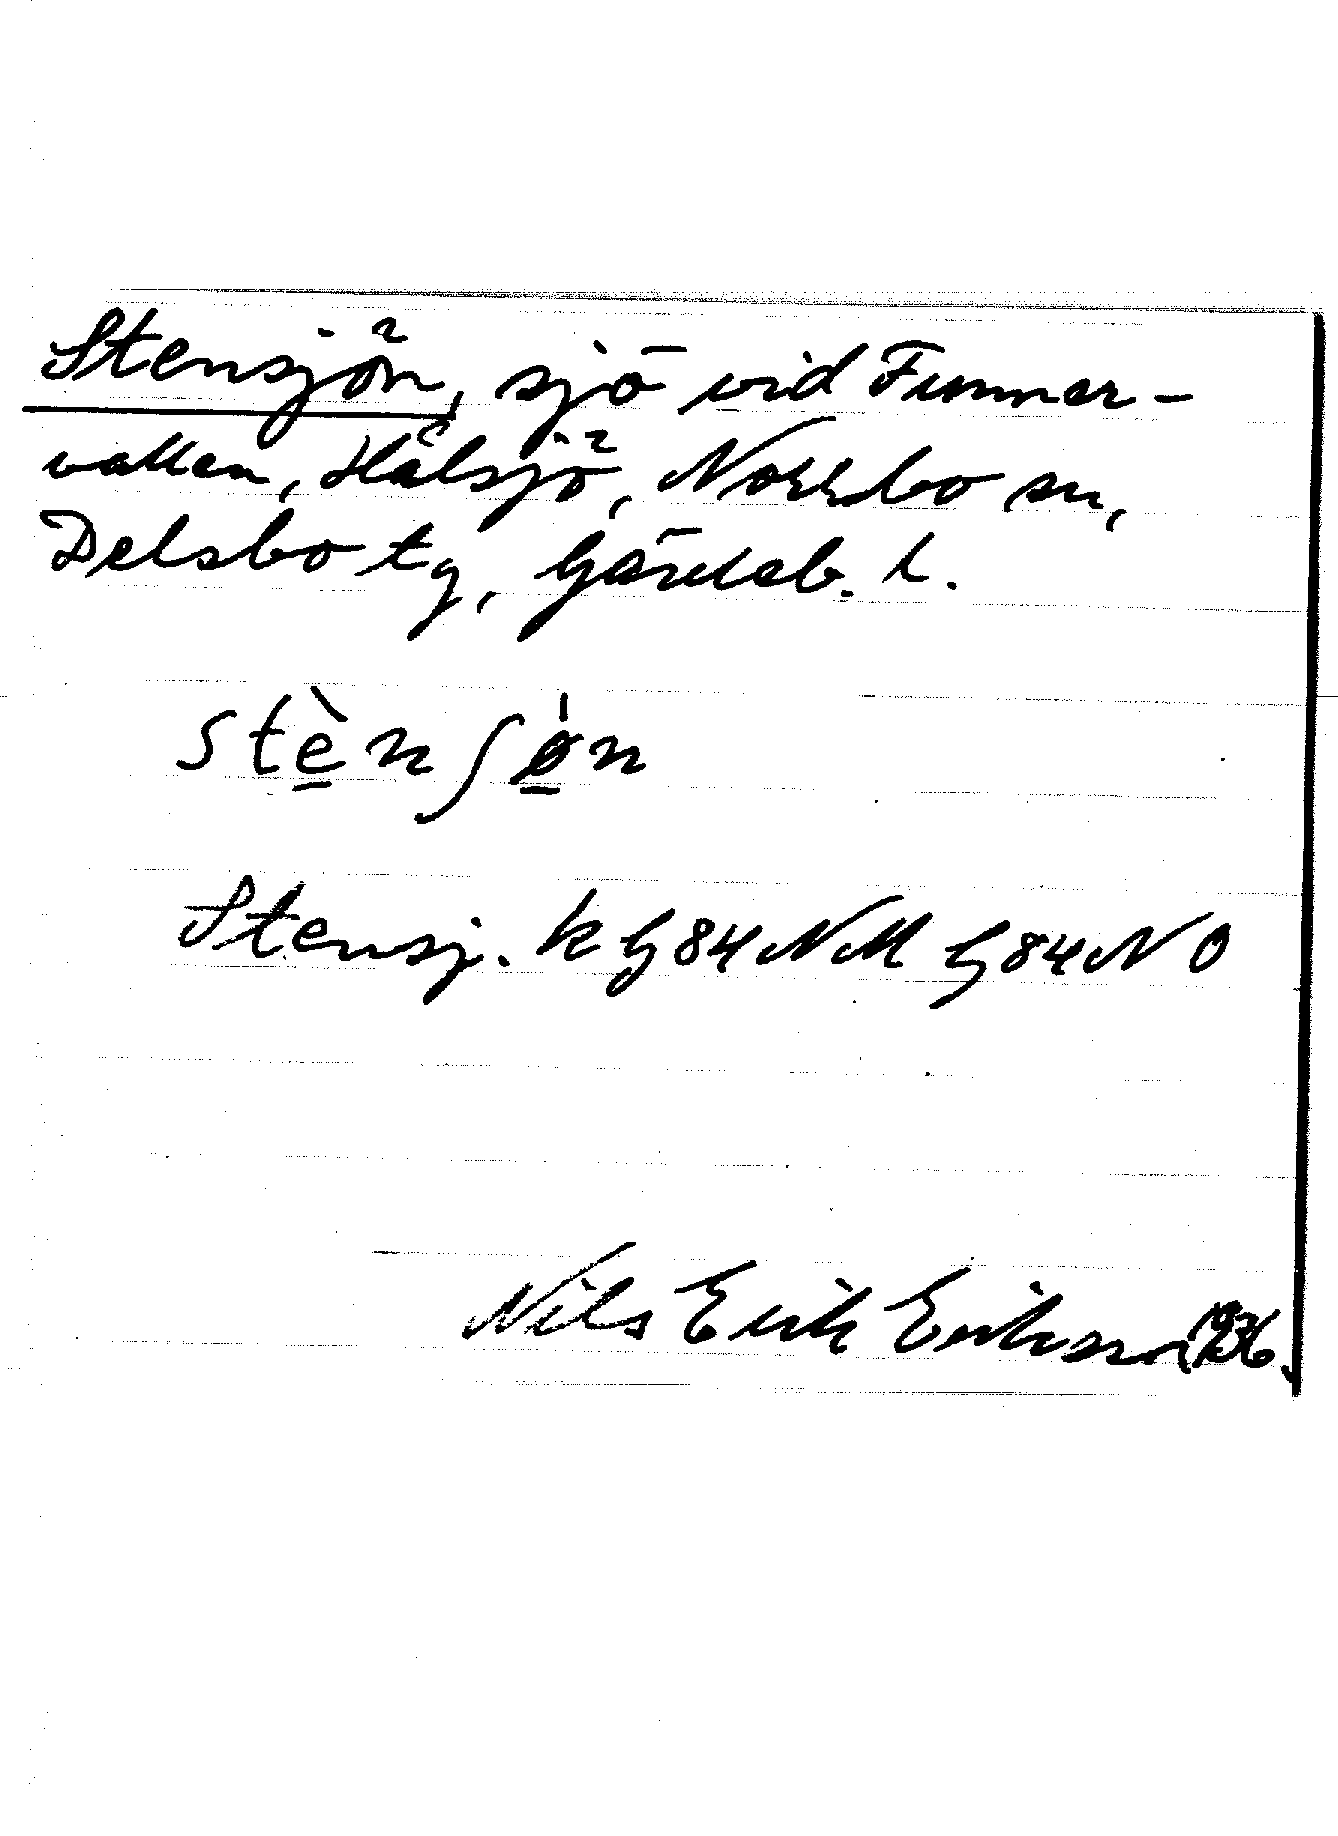 Stensjön, sjö vid Finnar-
vallen, Hålsjö, Norrbo sn,
Delsbo tg, Gävleb. l.
stè̠nʃø̠n
Stensj. k G84NM G84NO
Nils Erik Eriksson 1936.